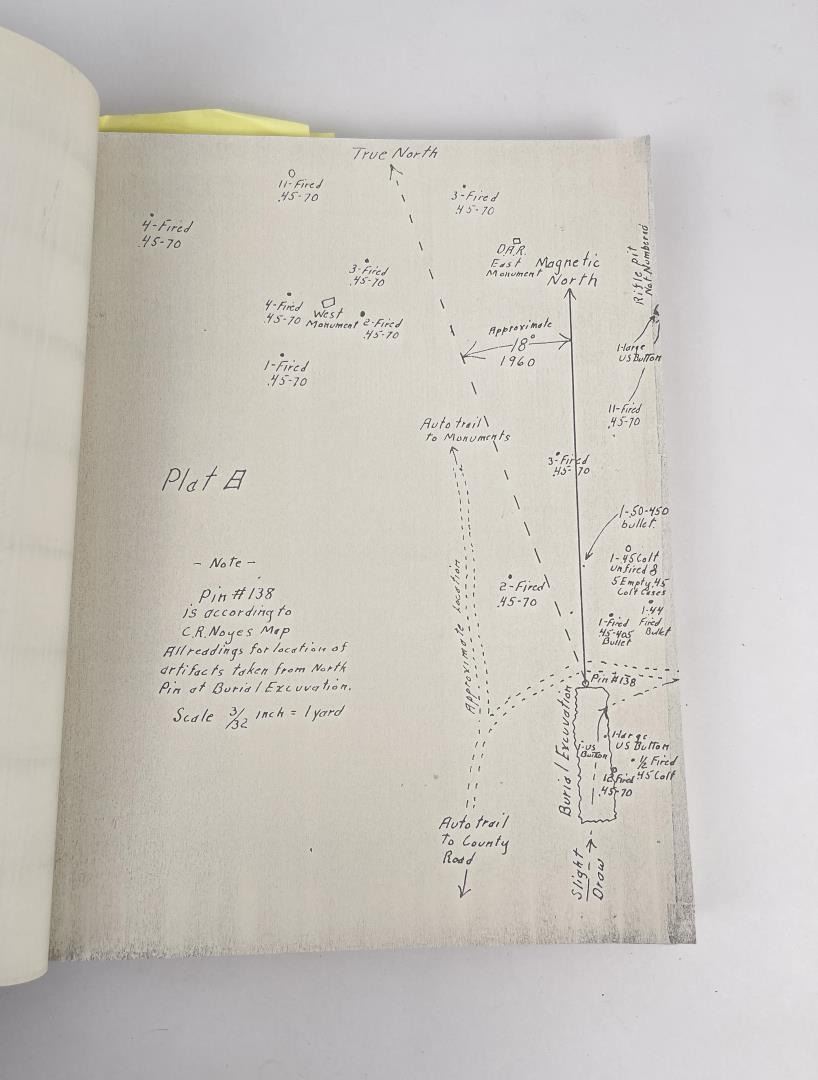 True North
11-Fired
.45-70
3-Fired
.45-70
4-Fired
.45-70
D.A.R.
East
Monument
Magnetic
North
Rifle pit
Not Numbered
3-Fired
.45-70
4-Fired
.45-70
West
Monument
2-Fired
.45-70
Approximate
18°
1960
1-large
US Button
1-Fired
.45-70
11-Fired
.45-70
Auto trail
to Monuments
3-Fired
.45-70
Plat B
1-.50-450
bullet
1-.45 Colt
unfired &
5 Empty .45
Colt Cases
- Note -
Pin #138
is according to
C.R. Noyes Map
All readings for location of
artifacts taken from North
Pin at Burial Excuvation.
Scale 3/32 inch = 1 yard
Approximate Location
2-Fired
.45-70
1-.44
Fired
Bullet
1-Fired
.45-405
Bullet
Pin #138
Burial Excuvation
1-large
US Button
1-US
Button
1/2 Fired
.45 Colt
12 Fired
.45-70
Auto trail
to County
Road
Slight
Draw